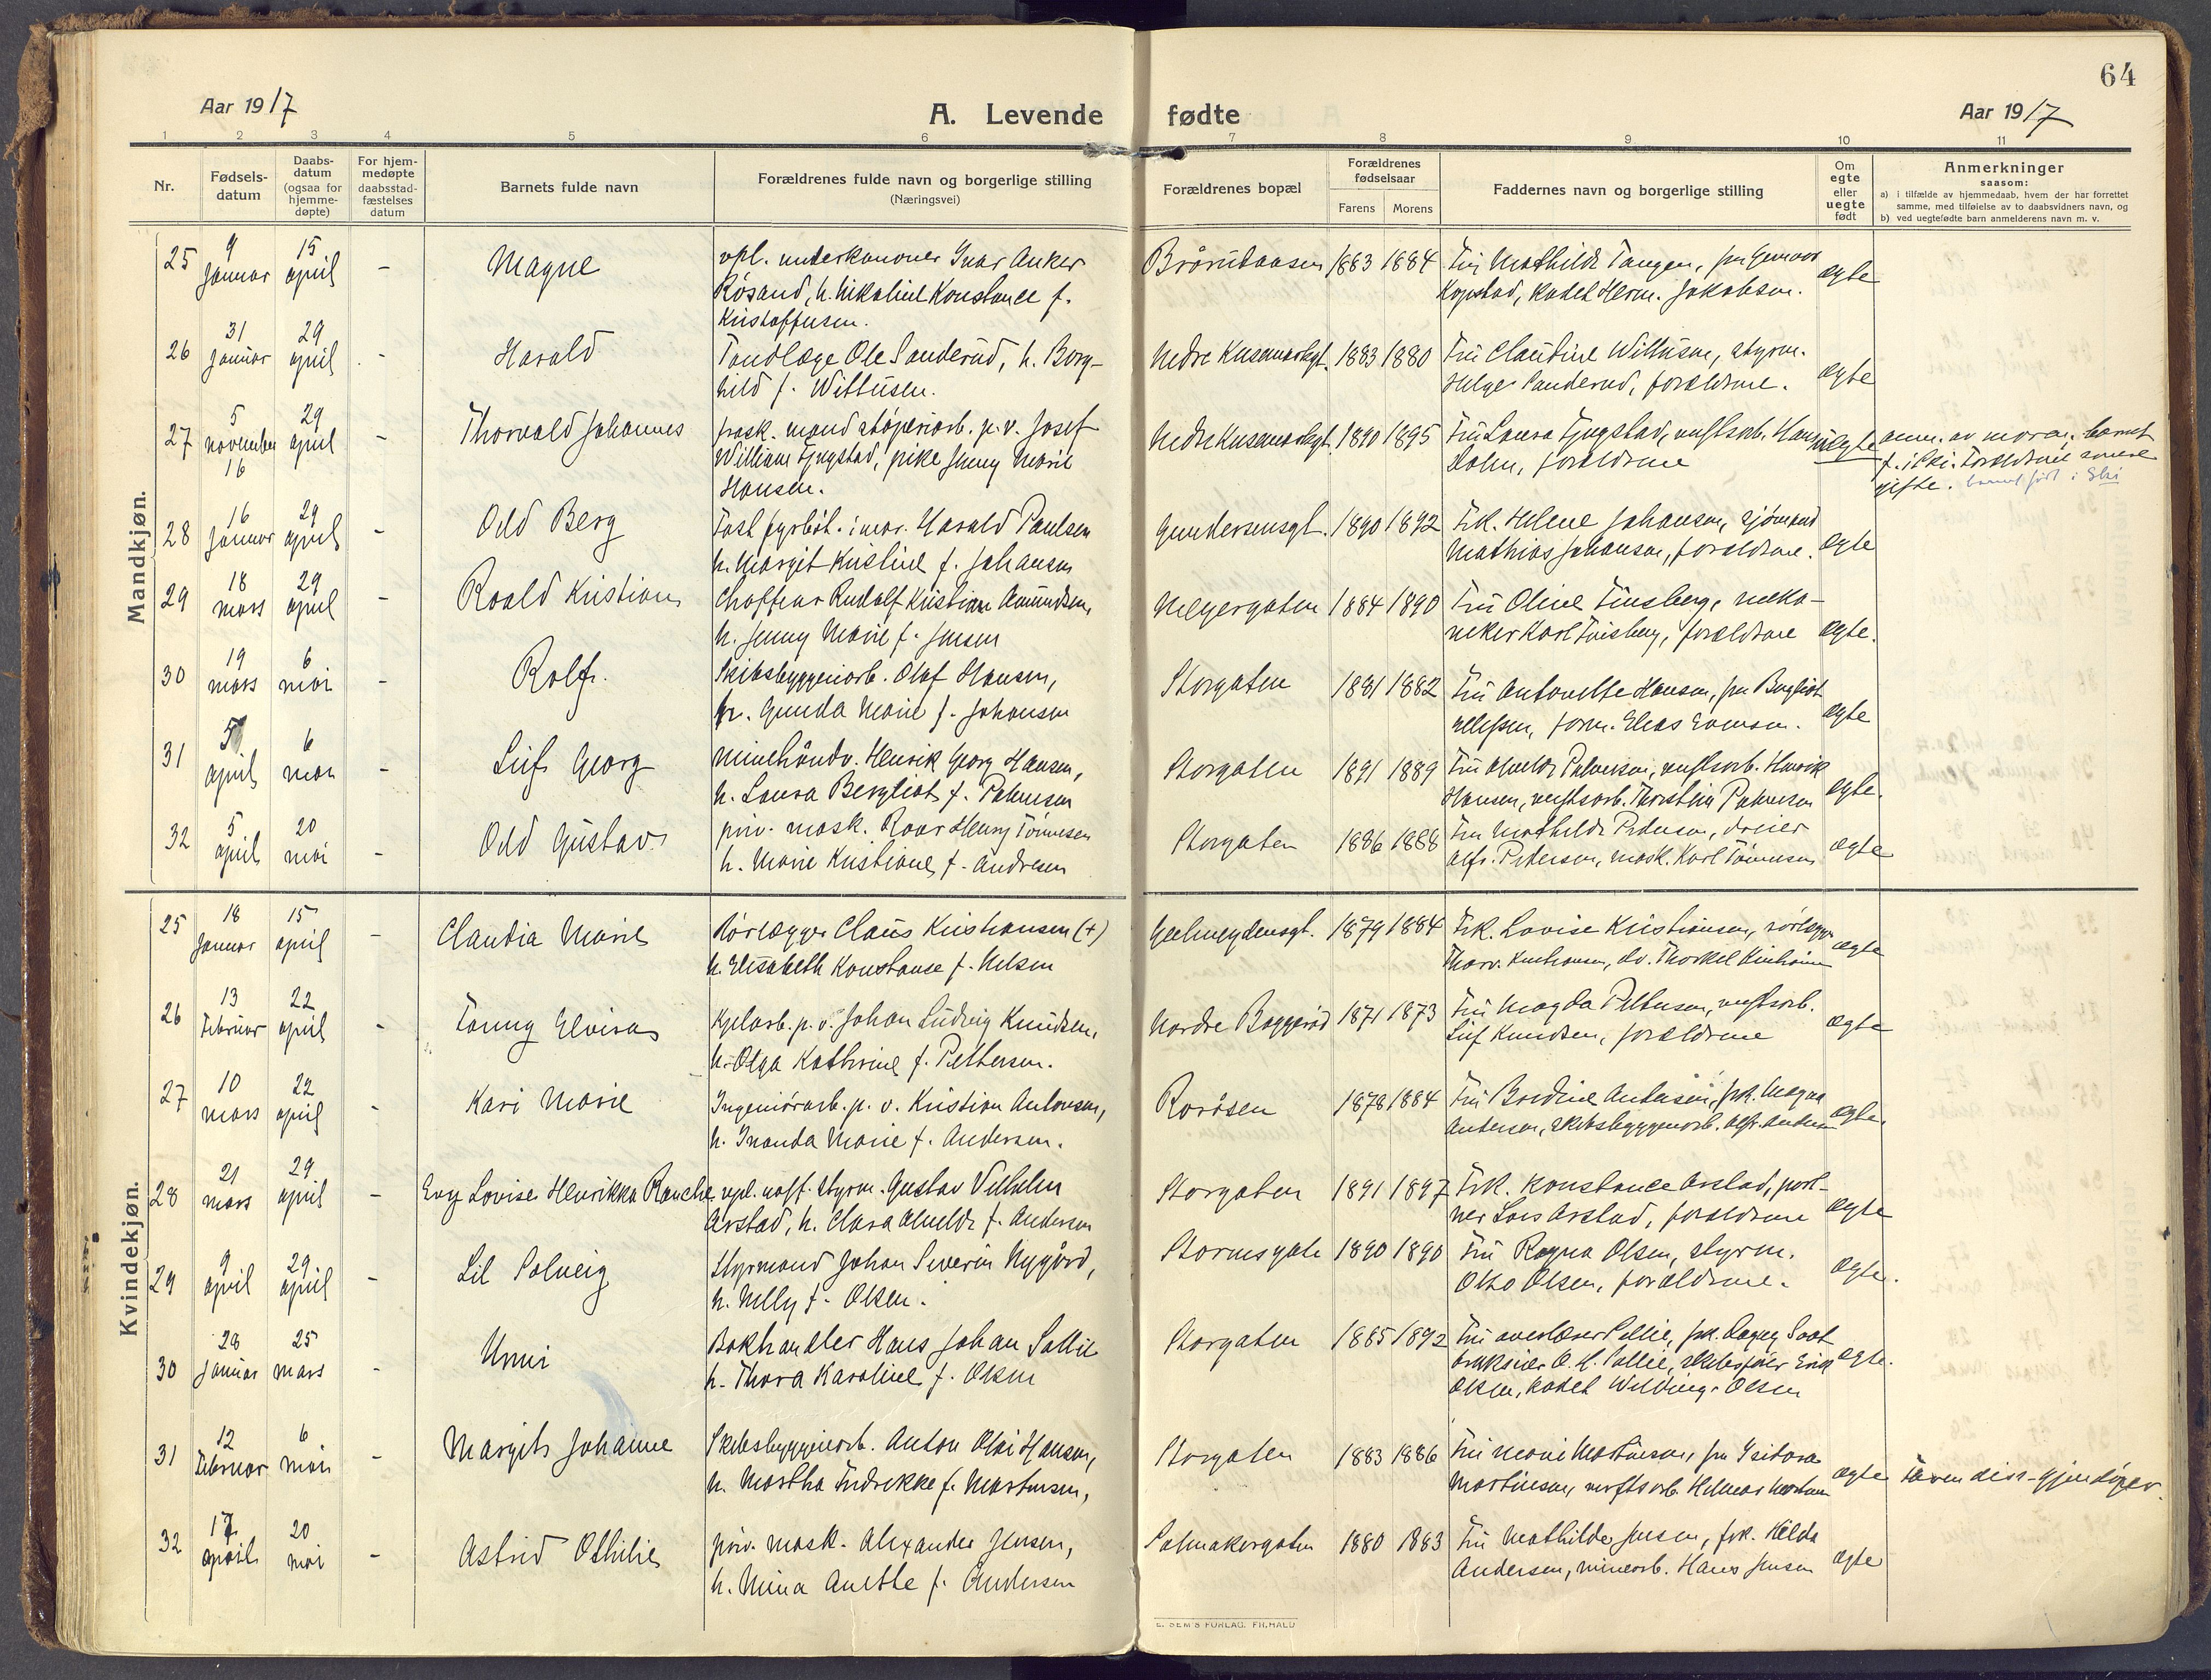 64
Aar 1917
A. Levende fødte
Aar 1917
1 2 3 4 5 6 7 8 9 10 11
Nr.
Fødsels-
datum
Daabs-
datum
(ogsaa for
hjemme-
døpte)
For hjem-
medøpte
daabsstad-
fæstelses
datum
Barnets fulde navn
Forældrenes fulde navn og borgerlige stilling
(Næringsvei)
Forældrenes bopæl
Forældrenes
fødselsaar
Farens Morens
Faddernes navn og borgerlige stilling
Om
egte
eller
uegte
født
Anmerkninger
saasom:
a) i tilfælde av hjemmedaab, hvem der har forrettet
samme, med tilføielse av to daabsvidners navn, og
b) ved uegtefødte barn anmelderens navn m. v.
Mandkjøn.
25 9 januar 15 april - Magne
vpl. underkanoner Ivar Anker
Røsand, h. Nikoline Konstance f.
Kristoffersen.
1883 1884 Fru Mathilde Tangen, fru
Kopstad, kadet Herm. Jakobsen. egte
26 31 januar 29 april - Harald
Tandlæge Ole Sanderud, h. Borg-
hild f. Wittusen.
Nedre 1883 1880 Fru Claudine Wittusen, styrm.
Helge Sanderud, forældrene. egte
27 5 november 16 29 april - Thorvald Johannes
frask. mand støperiarb. p. v. Josef
William Fyngstad, pike Jenny Marie
Hansen.
Nedre 1890 1895 Fru Laura Fyngstad, verftsarb. Hans
Holm, forældrene uegte
anm. av moren. barnet
f. i Ski. Forældrene senere
gifte. barnet født i Ski
28 16 januar 29 april - Odd Berg
Fast fyrbøt. i mar. Harald Paulsen
h. Margit Kristine f. Johansen
Gundersensgt. 1890 1892 Frk. Helene Johansen, sjømand
Mathias Johansen, forældrene. egte
29 18 mars 29 april - Roald Kristian
Chaffeur Rudolf Kristian Amundsen,
h. Jenny Marie f. Jensen
Meyergaten 1884 1890 Fru Oline Tinsberg, meka-
niker Karl Tinsberg, forældrene egte.
30 19 mars 6 mai - Rolf.
Skibsbyggeriarb. Olaf Hansen,
h. Gunda Marie f. Johansen
Storgaten 1881 1882 Fru Antonette Hansen, fru Bergliot
Nilssen, form. Elias egte
31 5 april 6 mai - Leif Georg
Minehåndv. Henrik Georg Hansen,
h. Laura Bergliot f. Palmesen
Storgaten 1891 1889 Fru Palmesen, verftsarb. Henrik
Hansen, verftsarb. Thorstein Palmesen egte.
32 5 april 20 mai - Odd Gustav
priv. mask. Roar Henry Tönnesen
h. Marie Kristiane f. Andresen
Storgaten 1886 1888 Fru Mathilde Pedersen, dreier
Alf. Pedersen, mask. Karl Tönnesen egte
Kvindekjøn.
25 18 januar 15 april - Claudia Marie
Rörlægger Claus Kristiansen (+)
h. Elisabeth Konstanse f. Nilsen
1879 1884 Frk. Lovise Kristiansen, rörlegger
Thorv. Kristiansen, do. Thorkel Kristiansen egte
26 13 februar 22 april - Fanny Elvira
Kjelarb. p. v. Johan Ludvig Knudsen,
h. Olga Kathrine f. Pettersen.
Nordre Baggerød 1871 1873 Fru Magda Pettersen, verftsarb.
Leif Knudsen, forældrene egte
27 10 mars 22 april - Kari Marie
Ingeniörarb. p. v. Kristian Antonsen,
h. Inanda Marie f. Andersen.
Roråsen 1878 1884 Fru Bredine Andersen, frk. Magna
Andersen, skibsbyggerarb. Alfr. Andersen egte.
28 21 mars 29 april - Evy Lovise Henrikka Ranche
vpl. uoff. styrm. Gustav Vilhelm
Arstad, h. Clara Alvilde f. Andersen
Storgaten 1891 1897 Frk. Konstance Arstad, port-
ner Lars Arstad, forældrene egte
29 9 april 29 april - Lil Solveig
Styrmand Johan Severin Nygård,
h. Nelly f. Olsen.
Stormsgate 1890 1890 Fru Ragna Olsen, styrm.
Otto Olsen, forældrene. egte.
30 28 januar 25 mars - Unni
Bokhandler Hans Johan Sollie
h. Thora Karoline f. Olsen
Storgaten 1885 1892 Fru overlærer Sollie, frk. Dagny
bruksier O. H. Sollie, skibsfører Erik
Olsen, kadet Willing. Olsen egte.
31 12 februar 6 mai - Margit Johanne
Skibsbyggeriarb. Anton Olai Hansen,
h. Martha Fredrikke f. Martinsen,
Storgaten 1883 1886 Fru Marie Martinsen, fru Isidora
Martinsen, verftsarb. Hilmar Martinsen egte Faren diss. - gjendøper
32 17 april 20 mai - Astrid Othilie
priv. mask. Alexander Jensen,
h. Mina Anette f. Andersen
1880 1883 Fru Mathilde Jensen, frk. Hilda
Andersen, minearb. Hans Jensen egte
E. SEM'S FORLAG, FR.HALD